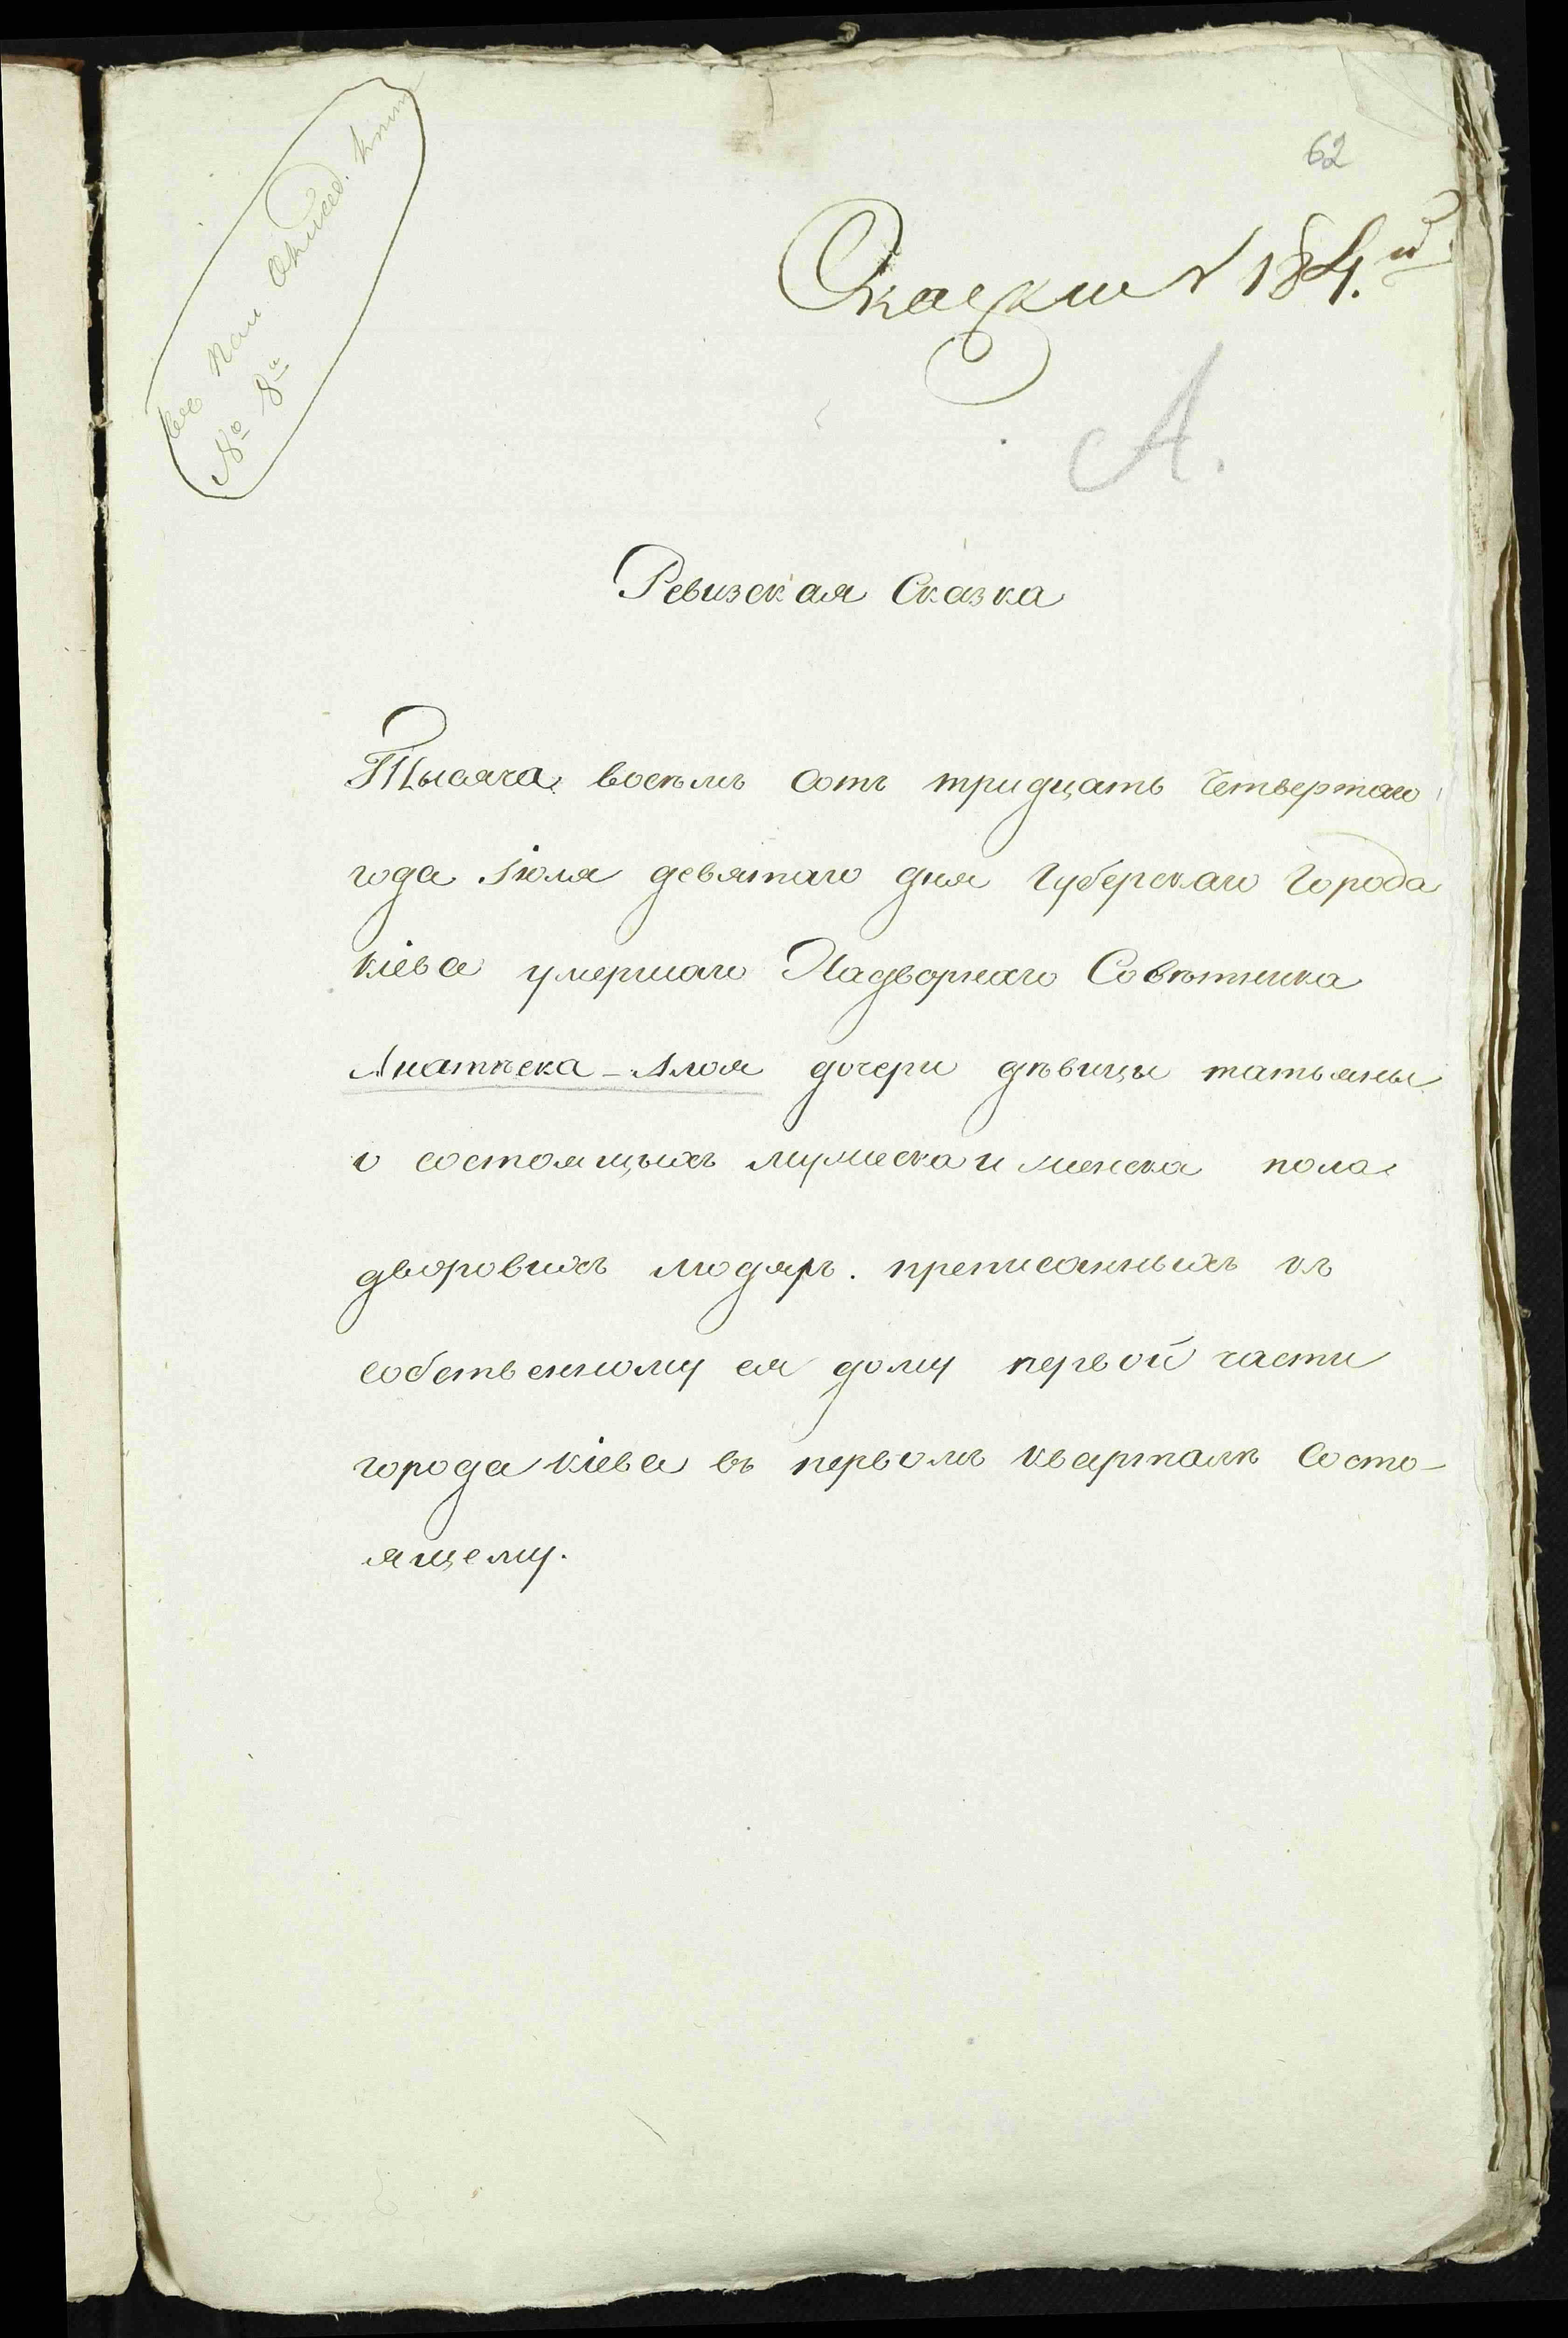 62
Сказки № 184.й
А.
№ 8й
Ревизская Сказка
Тысяча восемъ сотъ тридцать Четвертаго
года Іюля девятаго дня Губерскаго Города
кіева умершаго Надворнаго Совѣтника
дочери дѣвицы татьяны
о состоящыхъ мужеска и женска пола
дворовихъ людяхъ. преписанныхъ къ
собственному ея дому первой части
города кіева въ первомъ кварталѣ Состо-
ящему.